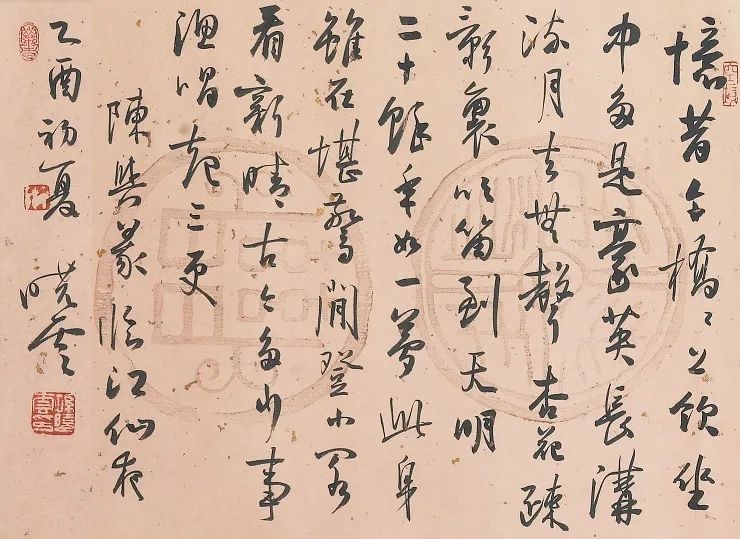 憶昔午橋〻上飲坐
中多是豪英長溝
流月去無聲杏花疎
影裏吹笛到天明
二十餘年如一夢此身
雖在堪驚閒登小閣
看新晴古今多少事
漁唱起三更
陳與義臨江仙夜
乙酉初夏 曉雲